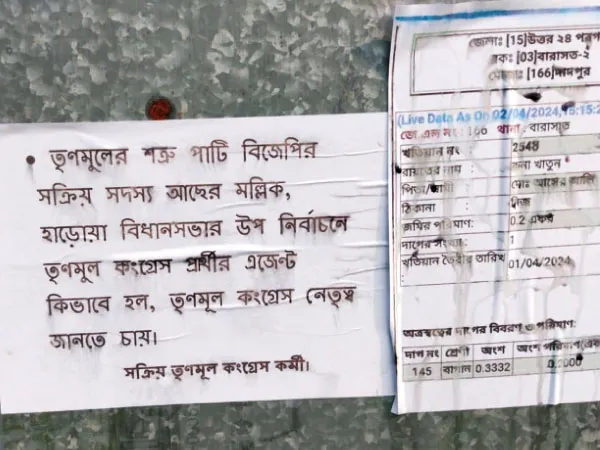 • তৃণমূলের শত্রু পার্টি বিজেপির
সক্রিয় সদস্য আছের মল্লিক,
হাড়োয়া বিধানসভার উপ নির্বাচনে
তৃণমূল কংগ্রেস প্রার্থীর এজেন্ট
কিভাবে হল, তৃণমূল কংগ্রেস নেতৃত্ব
জানতে চায়।
সক্রিয় তৃণমূল কংগ্রেস কর্মী।
জেলাঃ [15]উত্তর ২৪ পরগ
[03]বারাসত-২
[166]দাদপুর
(Live Data As On 02/04/2024,15:15:2
জে.এল নং : 166 থানা : বারাসাত
খতিয়ান নং : 2548
রায়তের নাম : খাতুন
পিতা/স্বামী : মোঃ
ঠিকানা : নিজ
জমির পরিমাণ: 0.2 একর
দাগের সংখ্যা : 1
খতিয়ান তৈরীর তারিখ : 01/04/2024
দাগের বিবরণ ও পরিমাণ:
দাগ নং শ্রেণী অংশ অংশ
145 বাগান 0.3332